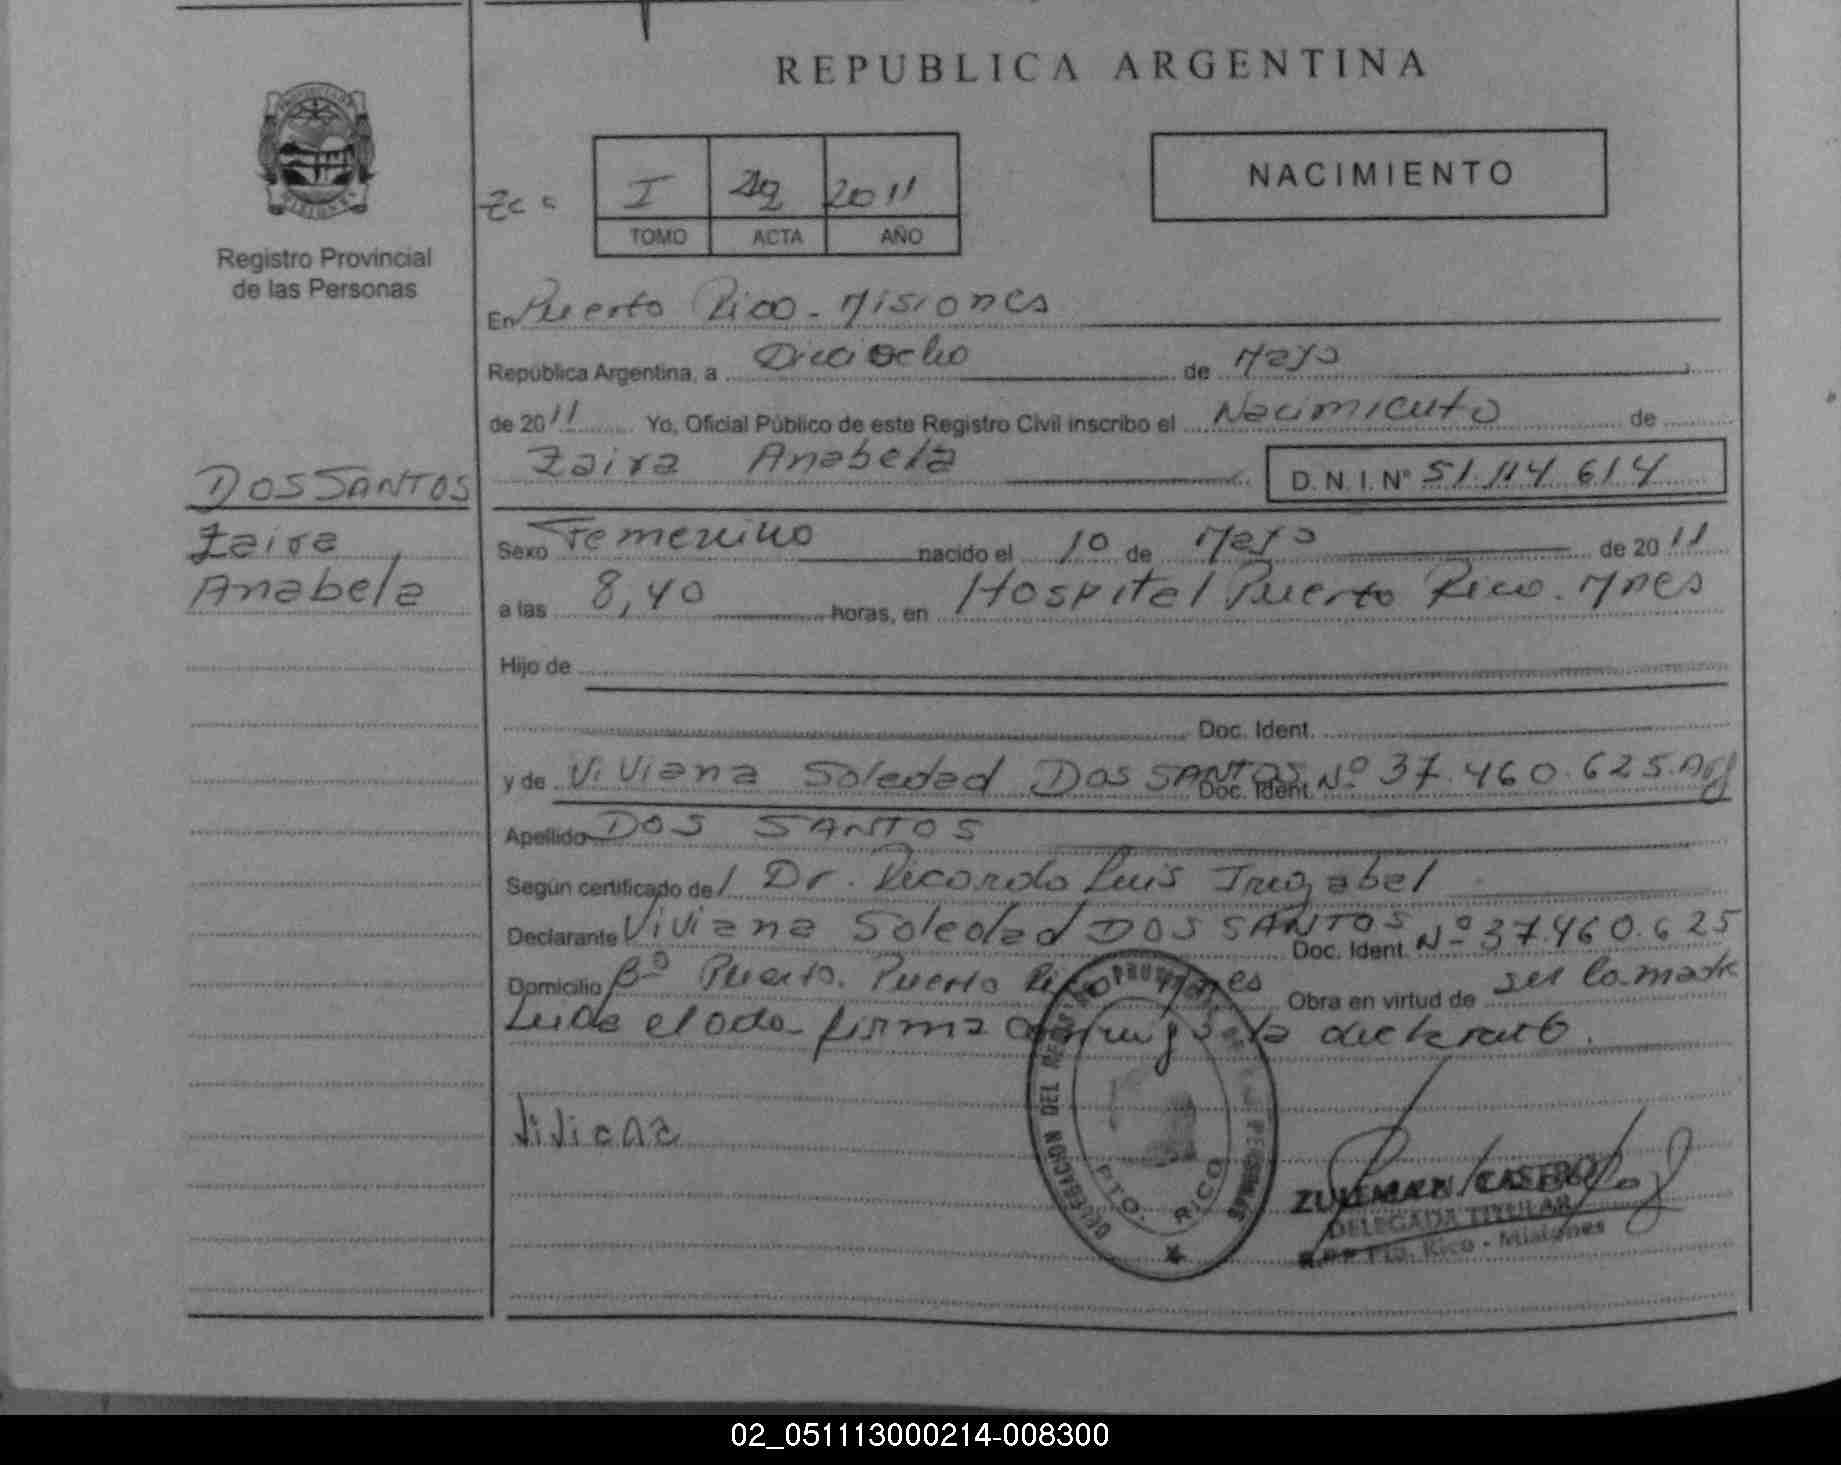 REPUBLICA ARGENTINA
I 2011
TOMO ACTA AÑO
NACIMIENTO
Registro Provincial
de las Personas
DOS SANTOS
Zaira
Anabela
En Puerto Rico - Misiones
República Argentina, a Dieciocho de Mayo
de 2011 Yo, Oficial Público de este Registro Civil inscribo el Nacimiento de
Zaira Anabela D. N. I. Nº 51.114.614
Sexo Femenino nacido el 10 de Mayo de 2011
a las 8,40 horas, en Hospital Puerto Rico. Mnes
Hijo de
Doc. Ident.
y de Viviana Soledad DOS SANTOS Doc. Ident. Nº 37.460.625. Arg
Apellido DOS SANTOS
Según certificado del Dr. Ricardo Luis
Declarante Viviana Soledad DOS SANTOS Doc. Ident. Nº 37.460.625
Domicilio Bº Puerto. Puerto Obra en virtud de ser la madre
firma la
Viviana
DELEGACION DEL REGISTRO PROVINCIAL DE LAS PERSONAS
PTO. RICO
CASTRO
DELEGADA TITULAR
Pto. Rico - Misiones
02_051113000214-008300